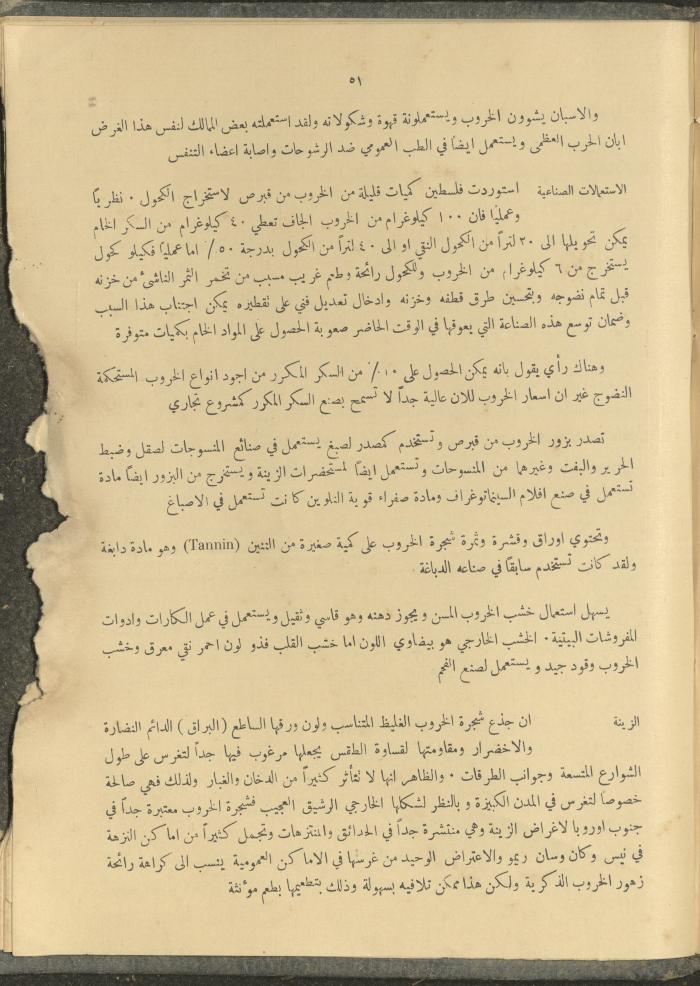 ٥١
والاسبان يشوون الخروب ويستعملونة قهوة وشكولاته ولقد استعملته بعض الممالك لنفس هذا الغرض
ابان الحرب العظمى ويستعمل ايضاً في الطب العمومي ضد الرشوحات واصابة اعضاء التنفس
الاستعمالات الصناعية استوردت فلسطين كميات قليلة من الخروب من قبرص لاستخراج الكحول . نظرياً
وعملياً فان ١٠٠ كيلوغرام من الخروب الجاف تعطي ٤٠ كيلوغرام من السكر الخام
يمكن تحويلها الى ٢٠ لتراً من الكحول النقي او الى ٤٠ لتراً من الكحول بدرجة ٥٠ ٪ اما عملياً فكيلو كحول
يستخرج من ٦ كيلوغرام من الخروب وللكحول رائحة وطعم غريب مسبب من تخمر الثمر الناشئ من خزنه
قبل تمام نضوجه وبتحسين طرق قطفه وخزنه وادخال تعديل فني على تقطيره يمكن اجتناب هذا السبب
وضمان توسع هذه الصناعة التي يعوقها في الوقت الحاضر صعوبة الحصول على المواد الخام بكميات متوفرة
وهناك رأي يقول بانه يمكن الحصول على ١٠٪ من السكر المكرر من اجود انواع الخروب المستحكمة
النضوج غير ان اسعار الخروب للان عالية جداً لا تسمح بصنع السكر المكرر كمشروع تجاري
تصدر بزور الخروب من قبرص وتستخدم كمصدر لصبغ يستعمل في صنائع المنسوجات لصقل وضبط
الحرير والبفت وغيرهما من المنسوحات وتستعمل ايضاً لمستحضرات الزينة ويستخرج من البزور ايضاً مادة
تستعمل في صنع افلام السينماتوغراف ومادة صفراء قوية التلوين كانت تستعمل في الاصباغ
وتحتوي اوراق وقشرة وثمرة شجرة الخروب على كمية صغيرة من التنين (Tannin) وهو مادة دابغة
ولقد كانت تستخدم سابقاً في صناعه الدباغة .
يسهل استعمال خشب الخروب المسن ويجوز دهنه وهو قاسي وثقيل ويستعمل في عمل الكارات وادوات
المفروشات البيتية . الخشب الخارجي هو بيضاوي اللون اما خشب القلب فذو لون احمر نقي معرق وخشب
الخروب وقود جيد ويستعمل لصنع الفحم
الزينة ان جذع شجرة الخروب الغليظ المتناسب ولون ورقها الساطع (البراق) الدائم النضارة
والاخضرار ومقاومتها لقساوة الطقس يجعلها مرغوب فيها جداً لتغرس على طول
الشوارع المتسعة وجوانب الطرقات . والظاهر انها لا تتأثر كثيراً من الدخان والغبار ولذلك فهي صالحة
خصوصاً لتغرس في المدن الكبيرة وبالنظر لشكلها الخارجي الرشيق العجيب فشجرة الخروب معتبرة جداً في
جنوب اوروبا لاغراض الزينة وهي منتشرة جداً في الحدائق والمنتزهات وتجمل كثيراً من اماكن النزهة
في نيس وكان وسان ريمو والاعتراض الوحيد من غرسها في الاماكن العمومية ينسب الى كراهة رائحة
زهور الخروب الذكرية ولكن هذا ممكن تلافيه بسهولة وذلك بتطعيمها بطعم مؤنثة